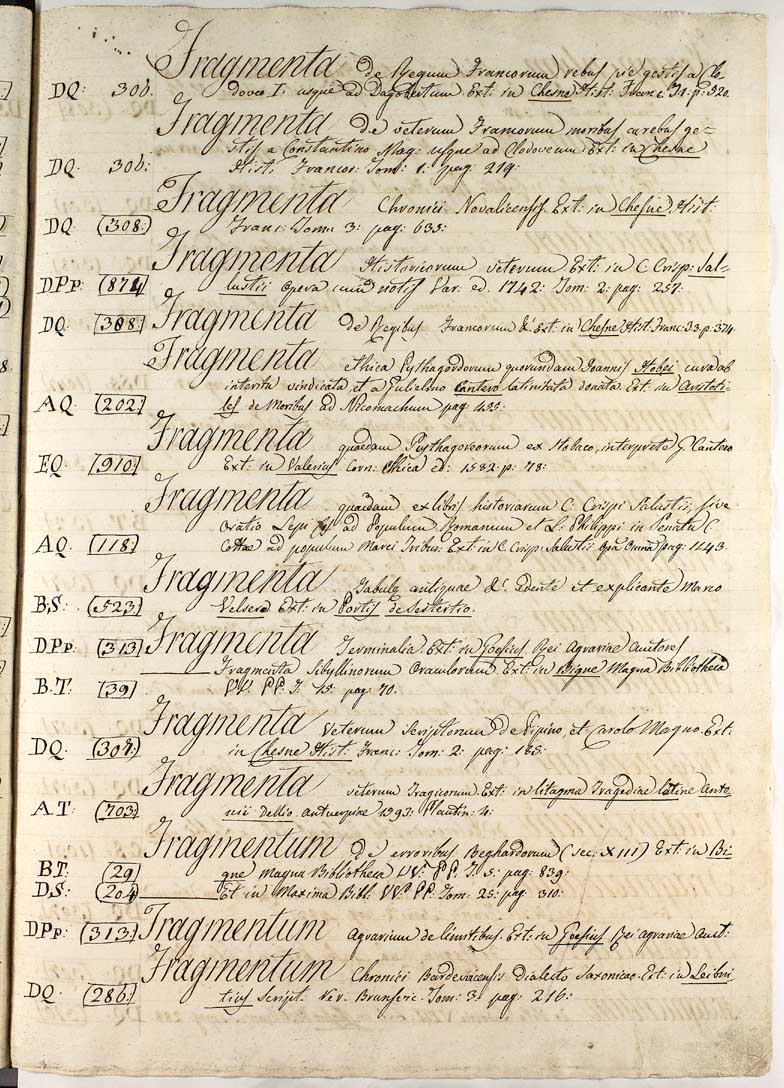 Fragmenta de Regum Francorum rebus pie gestis a Clo
DQ: 306. doveo I. usque ad Dagobertum Ext: in Chesne Hist: Franc: T.1. p: 520.
Fragmenta de veterum Francorum moribus ac rebus ge-
stis a Constantino Mag: usque ad Clodoveum Ext: in Chesne
DQ 306: Hist: Francor: Tom: 1: pag: 219:
Fragmenta Chronici Novalicensis Ext: in Chesne Hist:
DQ (308.) Franc: Tom: 3: pag: 635:
Fragmenta Historicorum veterum Ext: in C Crisp: Sal-
DPp: (871) lustii Opera cum notis Var: ed. 1742: Tom: 2: pag: 257:
DQ: (308.) Fragmenta de Regibus Francorum &c: Ext: in Chesne Hist: Franc: p: 374
Fragmenta ethica Pythagoreorum quorundam Joannis Stobei cura ab
interitu vindicata, et a Gulielmo Cantero latinitate donata. Ext: in Aristote
AQ: (202.) les de Moribus ad Nicomachum pag: 495:
Fragmenta quaedam Pythagoreorum ex Stobaeo, interprete G. Cantero
EQ. (910.) Ext: in Valerius Corn: Ethica ed: 1582: p: 78:
Fragmenta quaedam ex libris historiarum C: Crispi Salustii, sive
Oratio Lepi Cos ad Populum Romanum et L: Philippi in Senatu C
AQ: (118.) Cottae ad populum Marci Tribu: Ext: in C. Crisp: Salustii Opa Omnia pag: 1143.
Fragmenta Tabulae antiquae &c: edente et explicante Marco
B,S: (523.) Velsero Ext: in Portis de Sestertio.
DPp: (313.) Fragmenta Terminalia Ext: in Goesius Rei Agrariae Autores
Fragmenta Sibyllinorum Oraculorum Ext: in Bigne Magna Bibliotheca
B.T: (39) VV. PP. T. 15: pag: 70.
Fragmenta Veterum Scriptorum de Pipino, et Carolo Magno. Ext:
DQ: (307.) in Chesne Hist: Franc: Tom: 2: pag: 188:
Fragmenta veterum Tragicorum. Ext: in Sitagma Tragediae latine Anto-
A.T: (703.) nii Delrio Antverpiae 1593: Plantin: 4:
Fragmentum de erroribus Beghardorum (sec: XIII) Ext: in Bi-
BT: (29) gne Magna Bibliotheca VV. PP. T. 5: pag: 839:
DS: (204) Et in Maxima Bibl: VV. PP. Tom: 25: pag: 310:
DPp: (313.) Fragmentum Agrarium de limitibus. Ext: in Goesius Rei agrariae Aut:
Fragmentum Chronici Bardevicensis dialecto Saxonicae. Ext: in Leibni
DQ. (286.) tius Script. Rer. Brunsvic. Tom: 3. pag: 216: